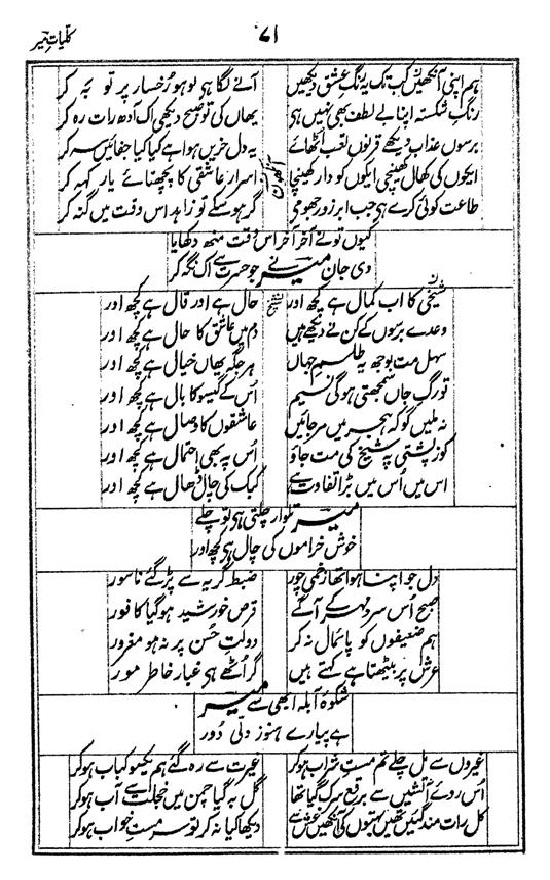 کلیاتِ میر
۷۱
ہم اپنی آنکھیں کب تک یہ رنگِ عشق دیکھیں آنے لگا ہی لوہو رخسار پر تو بہ کر
رنگِ شکستہ اپنا بے لطف بھی نہیں ہی یھاں کی تو صبح دیکھی اک آدھ رات رہ کر
برسوں عذاب دیکھے قرنوں تعب اُٹھائے یہ دل حزیں ہوا ہے کیا کیا جفائیں سہ کر
ایکوں کی کھال کھینچی ایکوں کو دار کھینچا اسرارِ عاشقی کا پچھتائے یار کہہ کر
طاعت کوئی کرے ہی جب ابر زور جھومی گر ہو سکے تو زاہد اس وقت میں گنہ کر
کیوں تونے آخر آخر اس وقت منھ دکھایا
دی جان میر نے جو حسرت سے اک نگہ کر
شیخی کا اب کمال ہے کچھ اور حال ہے اور قال ہے کچھ اور
وعدے برسوں کے کن نے دیکھے ہیں دم میں عاشق کا حال ہے کچھ اور
سہل مت بوجھ یہ طلسمِ جہاں ہر جگہ یھاں خیال ہے کچھ اور
تو رگِ جاں سمجھتی ہوگی نسیم اُس کے گیسو کا بال ہے کچھ اور
نہ ملیں گو کہ ہجر میں مر جائیں عاشقوں کا وصال ہے کچھ اور
کوز پشتی پہ شیخ کی مت جاؤ اُس پہ بھی احتمال ہے کچھ اور
اس میں اُس میں بڑا تفاوت ہے کبک کی چال ڈھال ہے کچھ اور
میر تلوار چلتی ہی تو چلے
خوش خراموں کی چال ہی کچھ اور
دل جو اپنا ہوا تھا زخمی چور ضبطِ گریہ سے پڑ گئے ناسور
صبح اُس سرد مہر کے آگے قرصِ خورشید ہوگیا کافور
ہم ضعیفوں کو پائمال نہ کر دولتِ حُسن پر نہ ہو مغرور
عرش پر بیٹھتا ہے کہتے ہیں گر اُٹھے ہی غبارِ خاطرِ مور
شکوۂ آبلہ ابھی سے میر
ہے پیارے ہنوز دلّی دُور
غیروں سے مل چلے تم مستِ شراب ہوکر غیرت سے رہ گئے ہم یکسو کباب ہوکر
اُس روئے آتشیں سے برقع سرک گیا تھا گل بہ گیا چمن میں خجلت سے آب ہوکر
کل رات مند گئیں تھیں بہتوں کی آنکھیں غش سے دیکھا کیا نہ کر تو سرمستِ خواب ہوکر